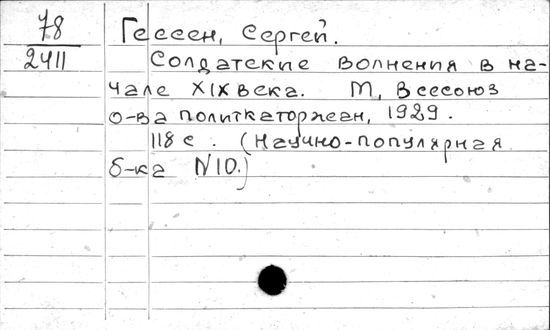 78
2411
Гессен, Сергей.
Солдатские волнения в на-
чале XIX века. М, Всесоюз
о-ва политкаторжан, 1929.
118 с. (Научно-популярная
б-ка N10.)